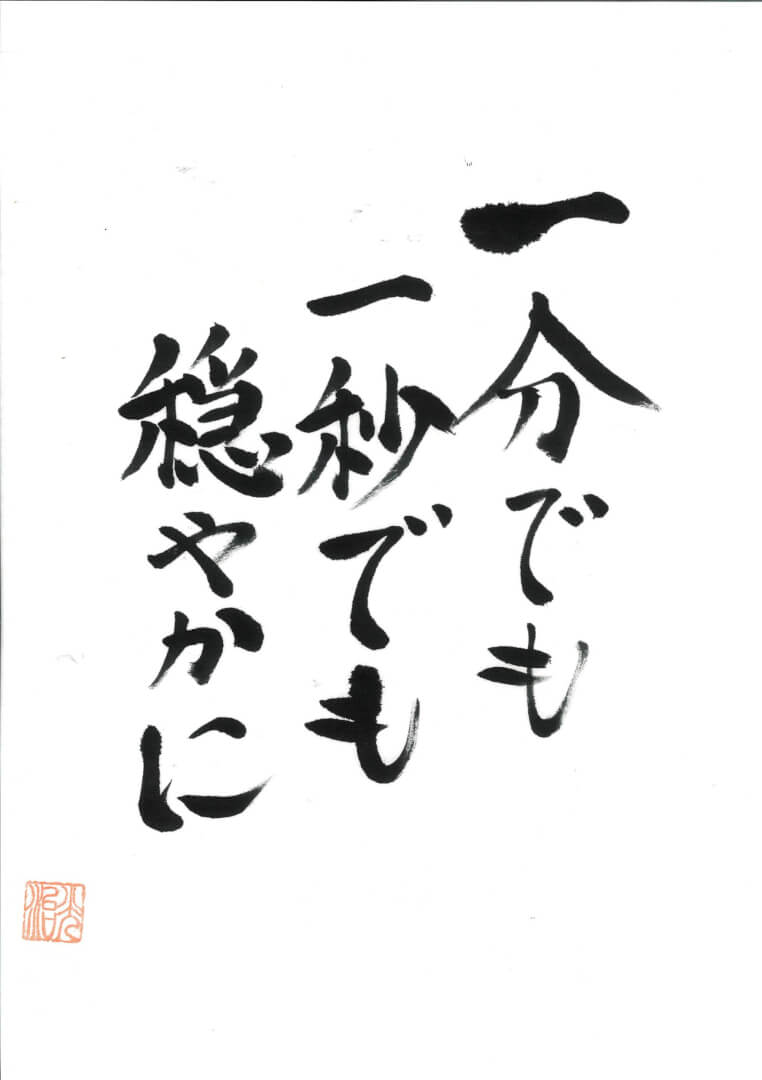 一分でも
一秒でも
穏やかに